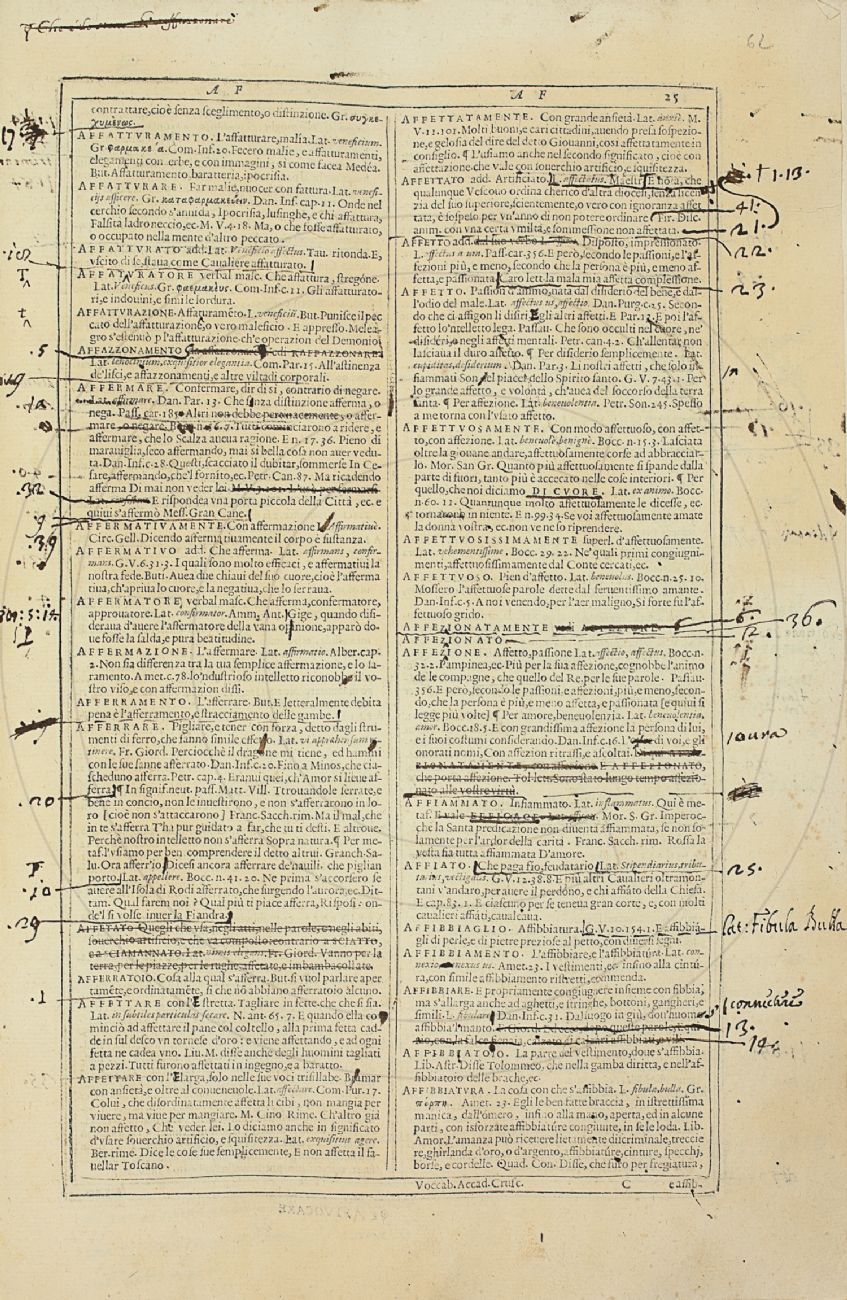 62
A F
A F 25
contrattare, cioè senza sceglimento, o distinzione. Gr. συγκε-
χυμένως.
AFFATTURAMENTO. L'affatturare, malia. Lat. veneficium.
Gr. φαρμακεία. Com. Inf. 20. Fecero malie, e affatturamenti,
elegamenti con erbe, e con immagini, sì come facea Medea.
But. Affatturamento, baratteria, ipocrisia.
AFFATTURARE. Far malie, nuocer con fattura. Lat. venefi-
ciis afficere. Gr. καταφαρμακεύειν. Dan. Inf. cap. 11. Onde nel
cerchio secondo s'annida, Ipocrisia, lusinghe, e chi affattura,
Falsità ladroneccio, ec. M. V. 4. 18. Ma, o che fosse affatturato,
o occupato nella mente d'altro peccato.
AFFATTURATO add. Lat. Veneficio affectus. Tau. ritonda. E,
vscito di se, staua come Caualiere affatturato.
AFFATTURATORE verbal masc. Che affattura, stregóne.
Lat. Veneficus. Gr. φαρμακεύς. Com. Inf. c. 11. Gli affatturato-
ri, e indouini, e simile lordura.
AFFATTURAZIONE. Affaturamẽto. L. veneficiũ. But. Punisce il pec
cato dell'affatturazione, o vero maleficio. E appresso. Melea-
gro s'estinuò p l'affatturazione ch'e operazion del Demonio
AFFAZZONAMENTO di RAFFAZZONARE
Lat. lenocinium, exquisitior elegantia. Com. Par. 15. All'astinenza
de'lisci, e affazzonamenti, e altre viltadi corporali.
AFFERMARE. Confermare, dir di sì, contrario di negare.
Lat. affirmare. Dan. Par. 13. Che sanza distinzione afferma, o
nega. Pass. car. 185. Altri non debbe pertinacemente, o affer-
mare, o negare. Bocc. n. 56. 7. Tutti cominciarono a ridere, e
affermare, che lo Scalza aueua ragione. E n. 17. 36. Pieno di
marauiglia, seco affermando, mai sì bella cosa non auer vedu-
ta. Dan. Inf. c. 28. Questi, scacciato il dubitar, sommerse In Ce-
sare, affermando, che'l fornito, ec. Petr. Can. 87. Ma ricadendo
afferma Di mai non veder lei
E rispondea vna porta piccola della Città, ec. e
quiui s'affermò Mess. Gran Cane.
AFFERMATIVAMENTE. Con affermazione. L. affirmatiuè.
Circ. Gell. Dicendo affermatiuamente il corpo è sustanza.
AFFERMATIVO add. Che afferma. Lat. affirmans, confir-
mans. G. V. 6. 31. 3. I quali sono molto efficaci, e affermatiui la
nostra fede. Buti. Auea due chiaui del suo cuore, cioè l'afferma
tiua, ch'apriua lo cuore, e la negatiua, che lo serraua.
AFFERMATORE, verbal masc. Che afferma, confermatore,
approuatore. Lat. confirmator. Amm. Ant. Gige, quando disi-
deraua d'auere l'affermatore della vana opinione, apparò do-
ue fosse la salda, e pura beatitudine.
AFFERMAZIONE. L'affermare. Lat. affirmatio. Alber. cap.
2. Non sia differenza tra la tua semplice affermazione, e lo sa-
ramento. Amet. c. 78. Io'ndustrioso intelletto riconobbe il vo-
stro viso, e con affermazion dissi.
AFFERRAMENTO. L'afferrare. But. E letteralmente debita
pena è l'afferramento, e stracciamento delle gambe.
AFFERRARE. Pigliare, e tener con forza, detto dagli stru-
menti di ferro, che fanno simile effetto. Lat. vi apprehensum re-
tinere. Fr. Giord. Perciocchè il dragone mi tiene, ed hammi
con le sue sanne afferrato. Dan. Inf. c. 20. Fino a Minos, che cia-
scheduno afferra. Petr. cap. 4. Eranui quei, ch'Amor sì lieue af-
ferra. ¶ In signif. neut. pass. Matt. Vill. Ttrouandole serrate, e
bene in concio, non le inuestirono, e non s'afferrarono in lo-
ro [cioè non s'attaccarono] Franc. Sacch. rim. Ma il mal, che
in te s'afferra T'ha pur guidato a far, che tu ti desti. E altroue.
Perchè nostro intelletto non s'afferra Sopra natura. ¶ Per me-
taf. l'vsiamo per ben comprendere il detto altrui. Granch. Sa-
lu. Ora afferr'io. Dicesi ancora afferrare de'nauili, che piglian
porto. Lat. appellere. Bocc. n. 41. 20. Ne prima s'accorsero se
auere all'Isola di Rodi afferrato, che surgendo l'aurora, ec. Dit-
tam. Qual farem noi? Qual più ti piace afferra, Risposi: on-
de'l si volse inuer la Fiandra.
AFFETATO Quegli che vsa, negli atti, nelle parole, e negli abiti,
souerchio artificio, e che va composto: contrario a SCIATTO,
ea SCIAMANNATO. Lat. nimis elegans. Fr. Giord. Vanno per la
terra, per le piazze, per le rughe, affetate, e imbambacollate.
AFFERRATOIO. Cosa alla qual s'afferra. But. si vuol parlare aper
tamẽte, e ordinatamẽte, sì che nõ abbiano afferratoio alcuno.
AFFETTARE con l'E stretta. Tagliare in fette, che che si sia.
Lat. in subtiles particulas secare. N. ant. 65. 7. E quando ella co-
minciò ad affettare il pane col coltello, alla prima fetta cad-
de in sul desco vn tornese d'oro: e viene affettando, e ad ogni
fetta ne cadea vno. Liu. M. disse anche degli huomini tagliati
a pezzi. Tutti furono affettati in ingegno, e a baratto.
AFFETTARE con l'E larga, solo nelle sue voci trisillabe. Bramar
con ansietà, e oltre al conueneuole. Lat. affectare. Com. Pur. 17.
Colui, che disordinatamente affetta li cibi, non mangia per
viuere, ma viue per mangiare. M. Cino Rime. Ch'altro già
non affetto, Che veder lei. Lo diciamo anche in significato
d'vsare souerchio artificio, e squisitezza. Lat. exquisitius agere.
Ber. rime. Dice le cose sue semplicemente, E non affetta il fa-
uellar Toscano.
AFFETTATAMENTE. Con grande ansietà. Lat. anxiè. M.
V. 11. 101. Molti buoni, e cari cittadini, auendo presa sospezio-
ne, e gelosia del dire del detto Giouanni, così affettatamente in
consiglio. ¶ L'usiamo anche nel secondo significato, cioè con
affettazione, che vale con souerchio artificio, e squisitezza.
AFFETTATO add. Artificiato. L. affectatus. Maestr. E nota, che
qualunque Vescouo ordina cherico d'altra diocesi, senza licen
zia del suo superiore, scientemente, o vero con ignoranza affet
tata, è sospeso per vn'anno di non potere ordinare. Fir. Disc.
anim. con vna certa vmiltà, e sommessione non affettata.
AFFETTO add. dal suo verbo Disposto, impressionato.
L. affectus a um. Pass. car. 356. E però, secondo le passioni, e l'af-
fezioni più, e meno, secondo che la persona è più, e meno af-
fetta, e passionata. Caro lett. la mala mia affetta complessione.
AFFETTO. Passion d'animo, nata dal disiderio del bene, e dal
l'odio del male. Lat. affectus us, affectio. Dan. Purg. 25. Secon-
do che ci affigon li disiri E gli altri affetti. E Par. 13. E poi l'af-
fetto lo'ntelletto lega. Passau. Che sono occulti nel cuore, ne'
disiderj, o negli affetti mentali. Petr. can. 42. Ch'allentar non
lasciaua il duro affetto. ¶ Per disiderio semplicemente. Lat.
cupiditas, desiderium. Dan. Par. 3. Li nostri affetti, che solo in-
fiammati Son nel piacer dello Spirito santo. G. V. 7. 43. 1. Per
lo grande affetto, e volontà, ch'auea del soccorso della terra
santa. ¶ Per affezione. Lat. beneuolentia. Petr. Son. 245. Spesso
a me torna con l'vsato affetto.
AFFETTVOSAMENTE. Con modo affettuoso, con affet-
to, con affezione. Lat. beneuolè, benignè. Bocc. n. 15. 3. Lasciata
oltre la giouane andare, affettuosamente corse ad abbracciar-
lo. Mor. San Gr. Quanto più affettuosamente si spande dalla
parte di fuori, tanto più è accecato nelle cose interiori. ¶ Per
quello, che noi diciamo DI CVORE. Lat. ex animo. Bocc.
n. 60. 12. Quantunque molto affettuosamente le dicesse, ec.
tornarono in niente. E n. 99. 34. Se voi affettuosamente amate
la donna vostra, ec. non ve ne so riprendere.
AFFETTVOSISSIMAMENTE superl. d'affettuosamente.
Lat. vehementissime. Bocc. 29. 22. Ne' quali primi congiugni-
menti, affettuosissimamente dal Conte cercati, ec.
AFFETTVOSO. Pien d'affetto. Lat. beneuolus. Bocc. n. 25. 10.
Mossero l'affettuose parole dette dal feruentissimo amante.
Dan. Inf. c. 5. A noi venendo, per l'aer maligno, Sì forte fu l'af-
fettuoso grido.
AFFEZIONATAMENTE
AFFEZIONATO
AFFEZIONE. Affetto, passione Lat. affectio, affectus. Bocc. n.
32. 2. Pampinea, ec. Più per la sua affezione, cognobbe l'animo
de le compagne, che quello del Re, per le sue parole. Passau.
356. E però, secondo le passioni, e affezioni, più, e meno, secon-
do, che la persona è più, e meno affetta, e passionata [e qui si
legge più volte] ¶ Per amore, beneuolenzia. Lat. beneuolentia,
amor. Bocc. 18. 5. E con grandissima affezione la persona di lui,
e i suoi costumi considerando. Dan. Inf. c. 16. l'oura di voi, e gli
onorati nomi, Con affezion ritrassi, e ascoltai.
con affezione E AFFEZIONATO,
che porta affezione. Tol. lett. Sono stato lungo tempo affezio-
nato alle vostre virtù.
AFFIAMMATO. Infiammato. Lat. inflammatus. Qui è me-
taf. E vale EFFICACE. Mor. S. Gr. Imperoc-
che la Santa predicazione non diuenta affiammata, se non so-
lamente per l'ardor della carità. Franc. Sacch. rim. Rossa la
vesta fia tutta affiammata D'amore.
AFFIATO. Che paga fio, feudatario. Lat. Stipendiarius, tribu-
tarius, vectigalis. G. V. 12. 38. 8. E più altri Caualieri oltramon-
tani v'andaro, per auere il perdóno, e chi affiato della Chiesa.
E cap. 83. 1. E ciascuno per se teneua gran corte, e, con molti
caualieri affiati, caualcaua.
AFFIBBIAGLIO. Affibbiatura. G. V. 10. 154. 1. E affibbia-
gli di perle, e di pietre preziose al petto, con diuersi segni.
AFFIBBIAMENTO. L'affibbiare, e l'affibbiatura. Lat. con-
nexio, nexus us. Amet. 23. I vestimenti, ec. insino alla cintu-
ra, con simile affibbiamento ristretti, commenda.
AFFIBBIARE. E propriamente congiugnere insieme con fibbia,
ma s'allarga anche ad aghetti, e stringhe, bottoni, gangheri, e
simili. L. fibulare. Dan. Inf. c. 31. Da luogo in giù, dou'huomo
affibbia'l manto.
AFFIBBIATOIO. La parte del vestimento, doue s'affibbia.
Lib. Astr. Disse Tolommeo, che nella gamba diritta, e nell'af-
fibbiatoio delle brache, ec.
AFFIBBIATVRA. La cosa con che s'affibbia. L. fibula, bulla. Gr.
πόρπη. Amet. 23. Egli le ben fatte braccia, in istrettissima
manica, dall'ómero, infino alla mano, aperta, ed in alcune
parti, con isforzate affibbiature congiunte, in se le loda. Lib.
Amor. L'amanza può riceuere lietamente discriminale, treccie
re, ghirlanda d'oro, o d'argento, affibbiature, cinture, specchj,
borse, e cordelle. Quad. Con. Disse, che furo per fregiatura,
Voccab. Accad. Crusc. C e affib-
† 1. 13.
41.
21.
22.
23.
36.
6.
12.
loura
25.
lat: Fibula Bulla
13.
14.
.5
.32
9
.39
.20
.10
.29
.1